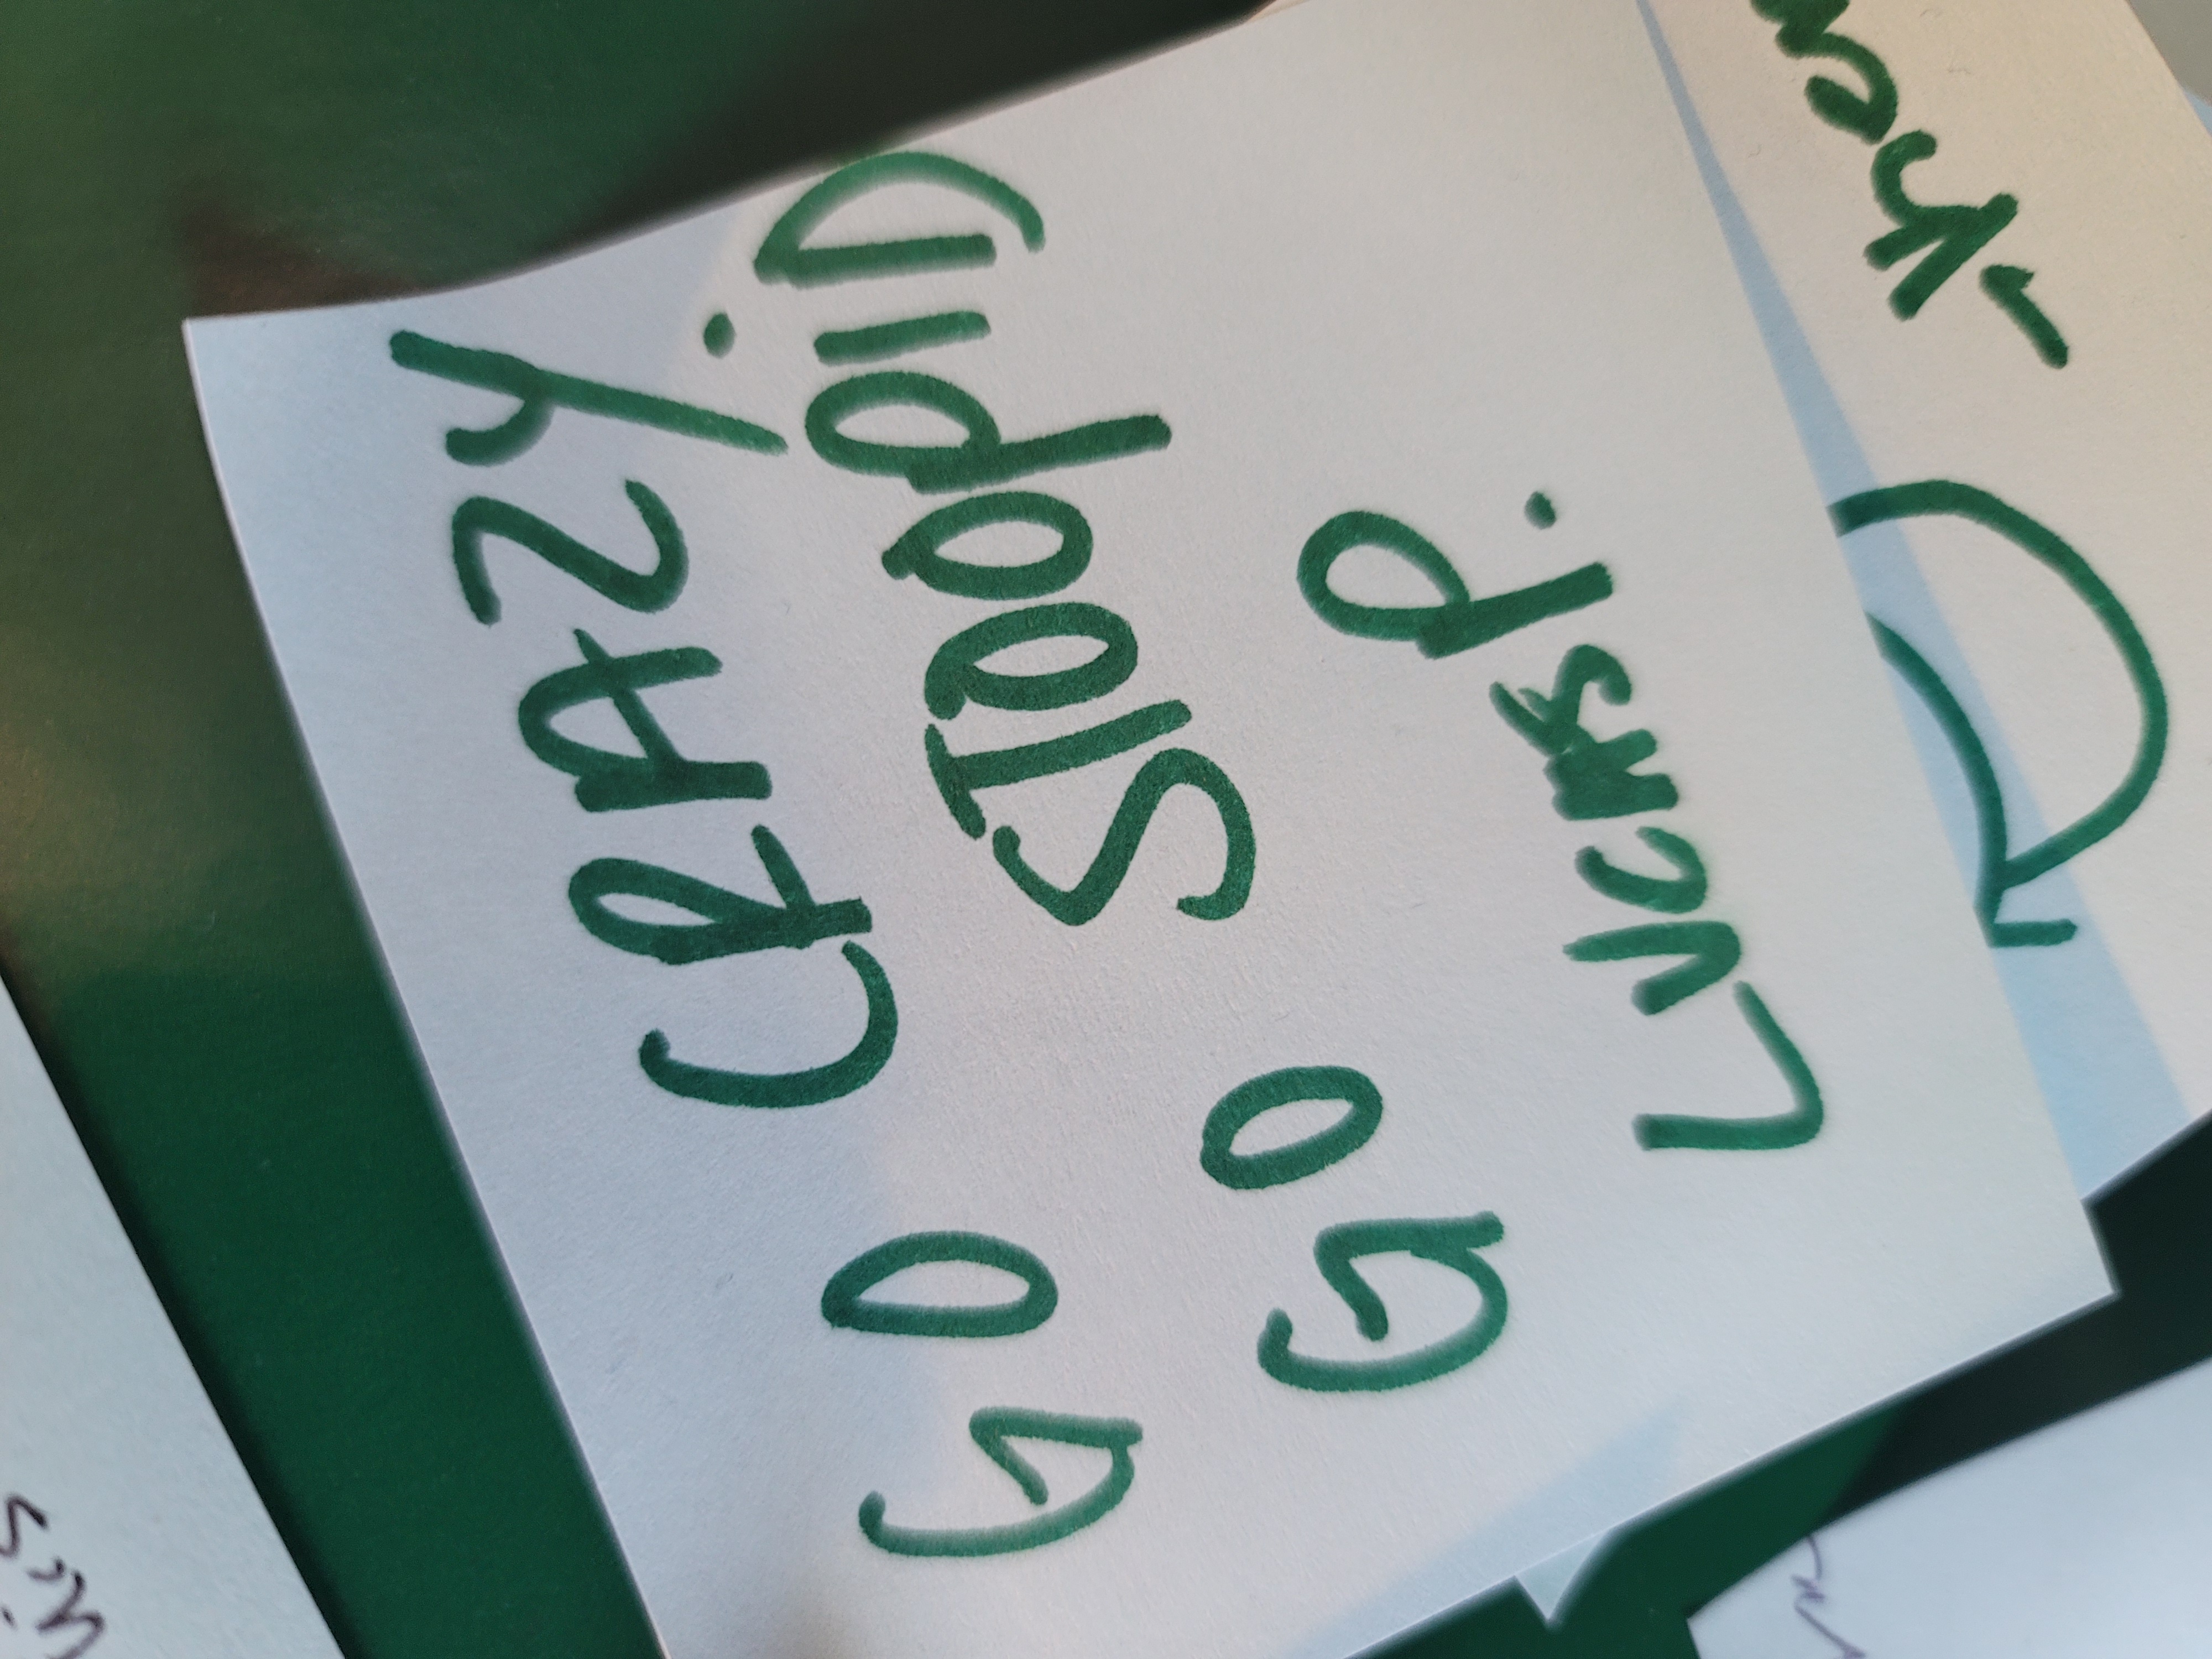 GO CRAZY
GO STOOPiD
LUCAS P.